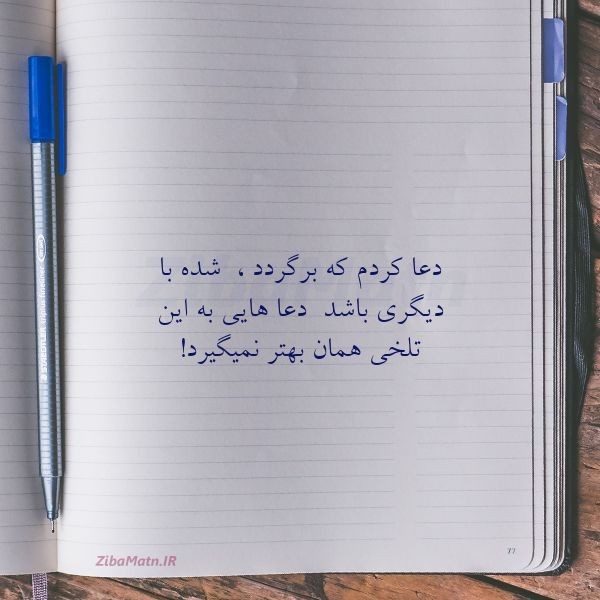 دعا کردم که برگردد ، شده با
دیگری باشد دعا هایی به این
تلخی همان بهتر نمیگیرد!
STAEDTLER triplus fineliner
77
ZibaMatn.IR